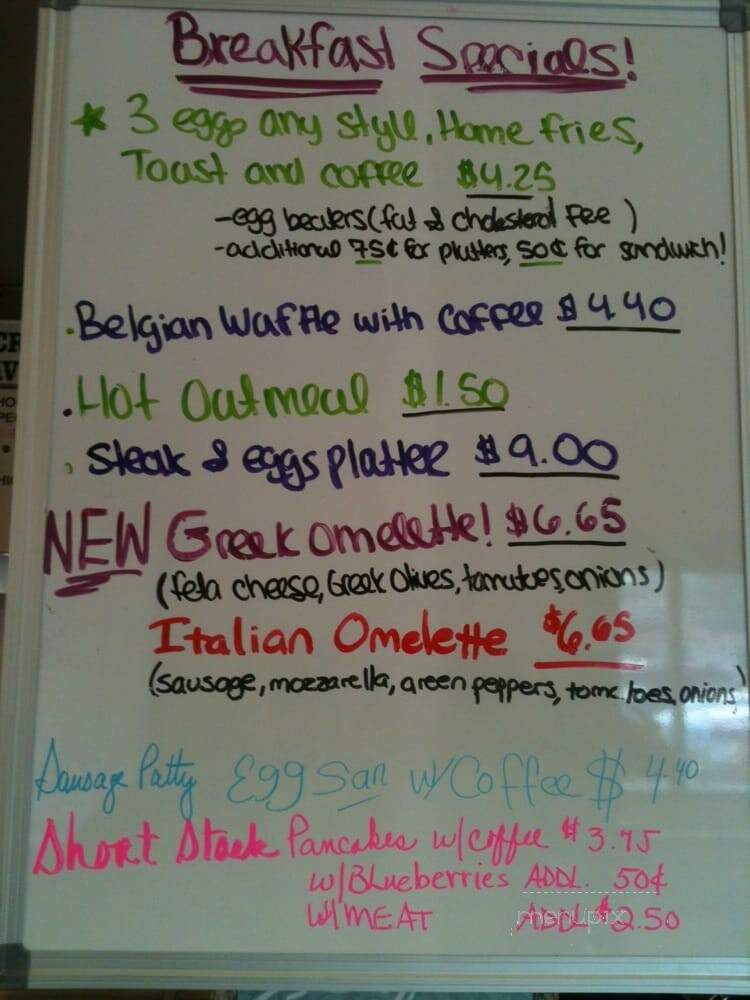 Breakfast Specials!
* 3 eggs any style, Home fries,
Toast and coffee $4.25
-egg beaters (fat & cholesterol Fee )
-additional 75¢ for platters, 50¢ for sandwich!
. Belgian Waffle with coffee $4.40
. Hot Oatmeal $1.50
, Steak & eggs platter $9.00
NEW Greek omelette! $6.65
(feta cheese, Greek Olives, tomatoes, onions)
Italian Omelette $6.65
(sausage, mozzarella, green peppers, tomatoes, onions)
Sausage Patty Egg San w/ Coffee $4.40
Short Stack Pancakes w/coffee $3.95
w/BLueberries ADDL. 50¢
W/MEAT ADDL $2.50
menupix